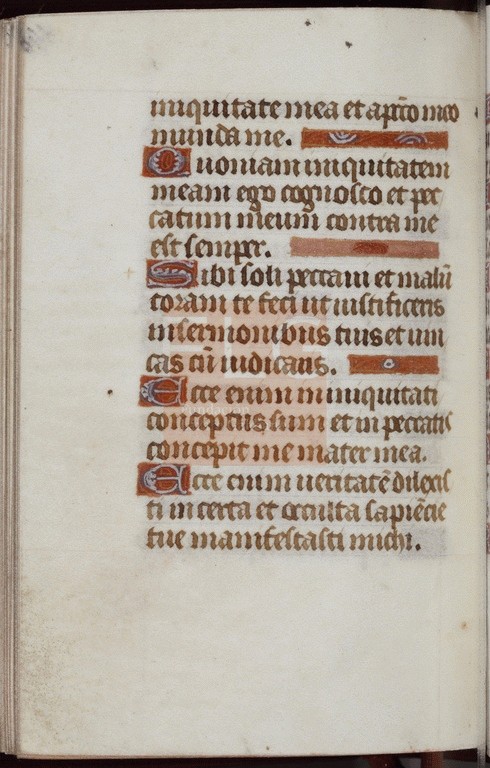 iniquitate mea et a pcc̄o meo
munda me.
Quoniam iniquitatem
meam ego cognosco et pec
catum meum contra me
est semper.
Tibi soli peccaui et malū
coram te feci ut iustificeris
in sermonibus tuis et uin
cas cū iudicaris.
Ecce enim in iniquitati
conceptus sum et in peccatis
concepit me mater mea.
Ecce enim ueritatē dilexis
ti incerta et occulta sapiēcie
tue manifestasti michi.